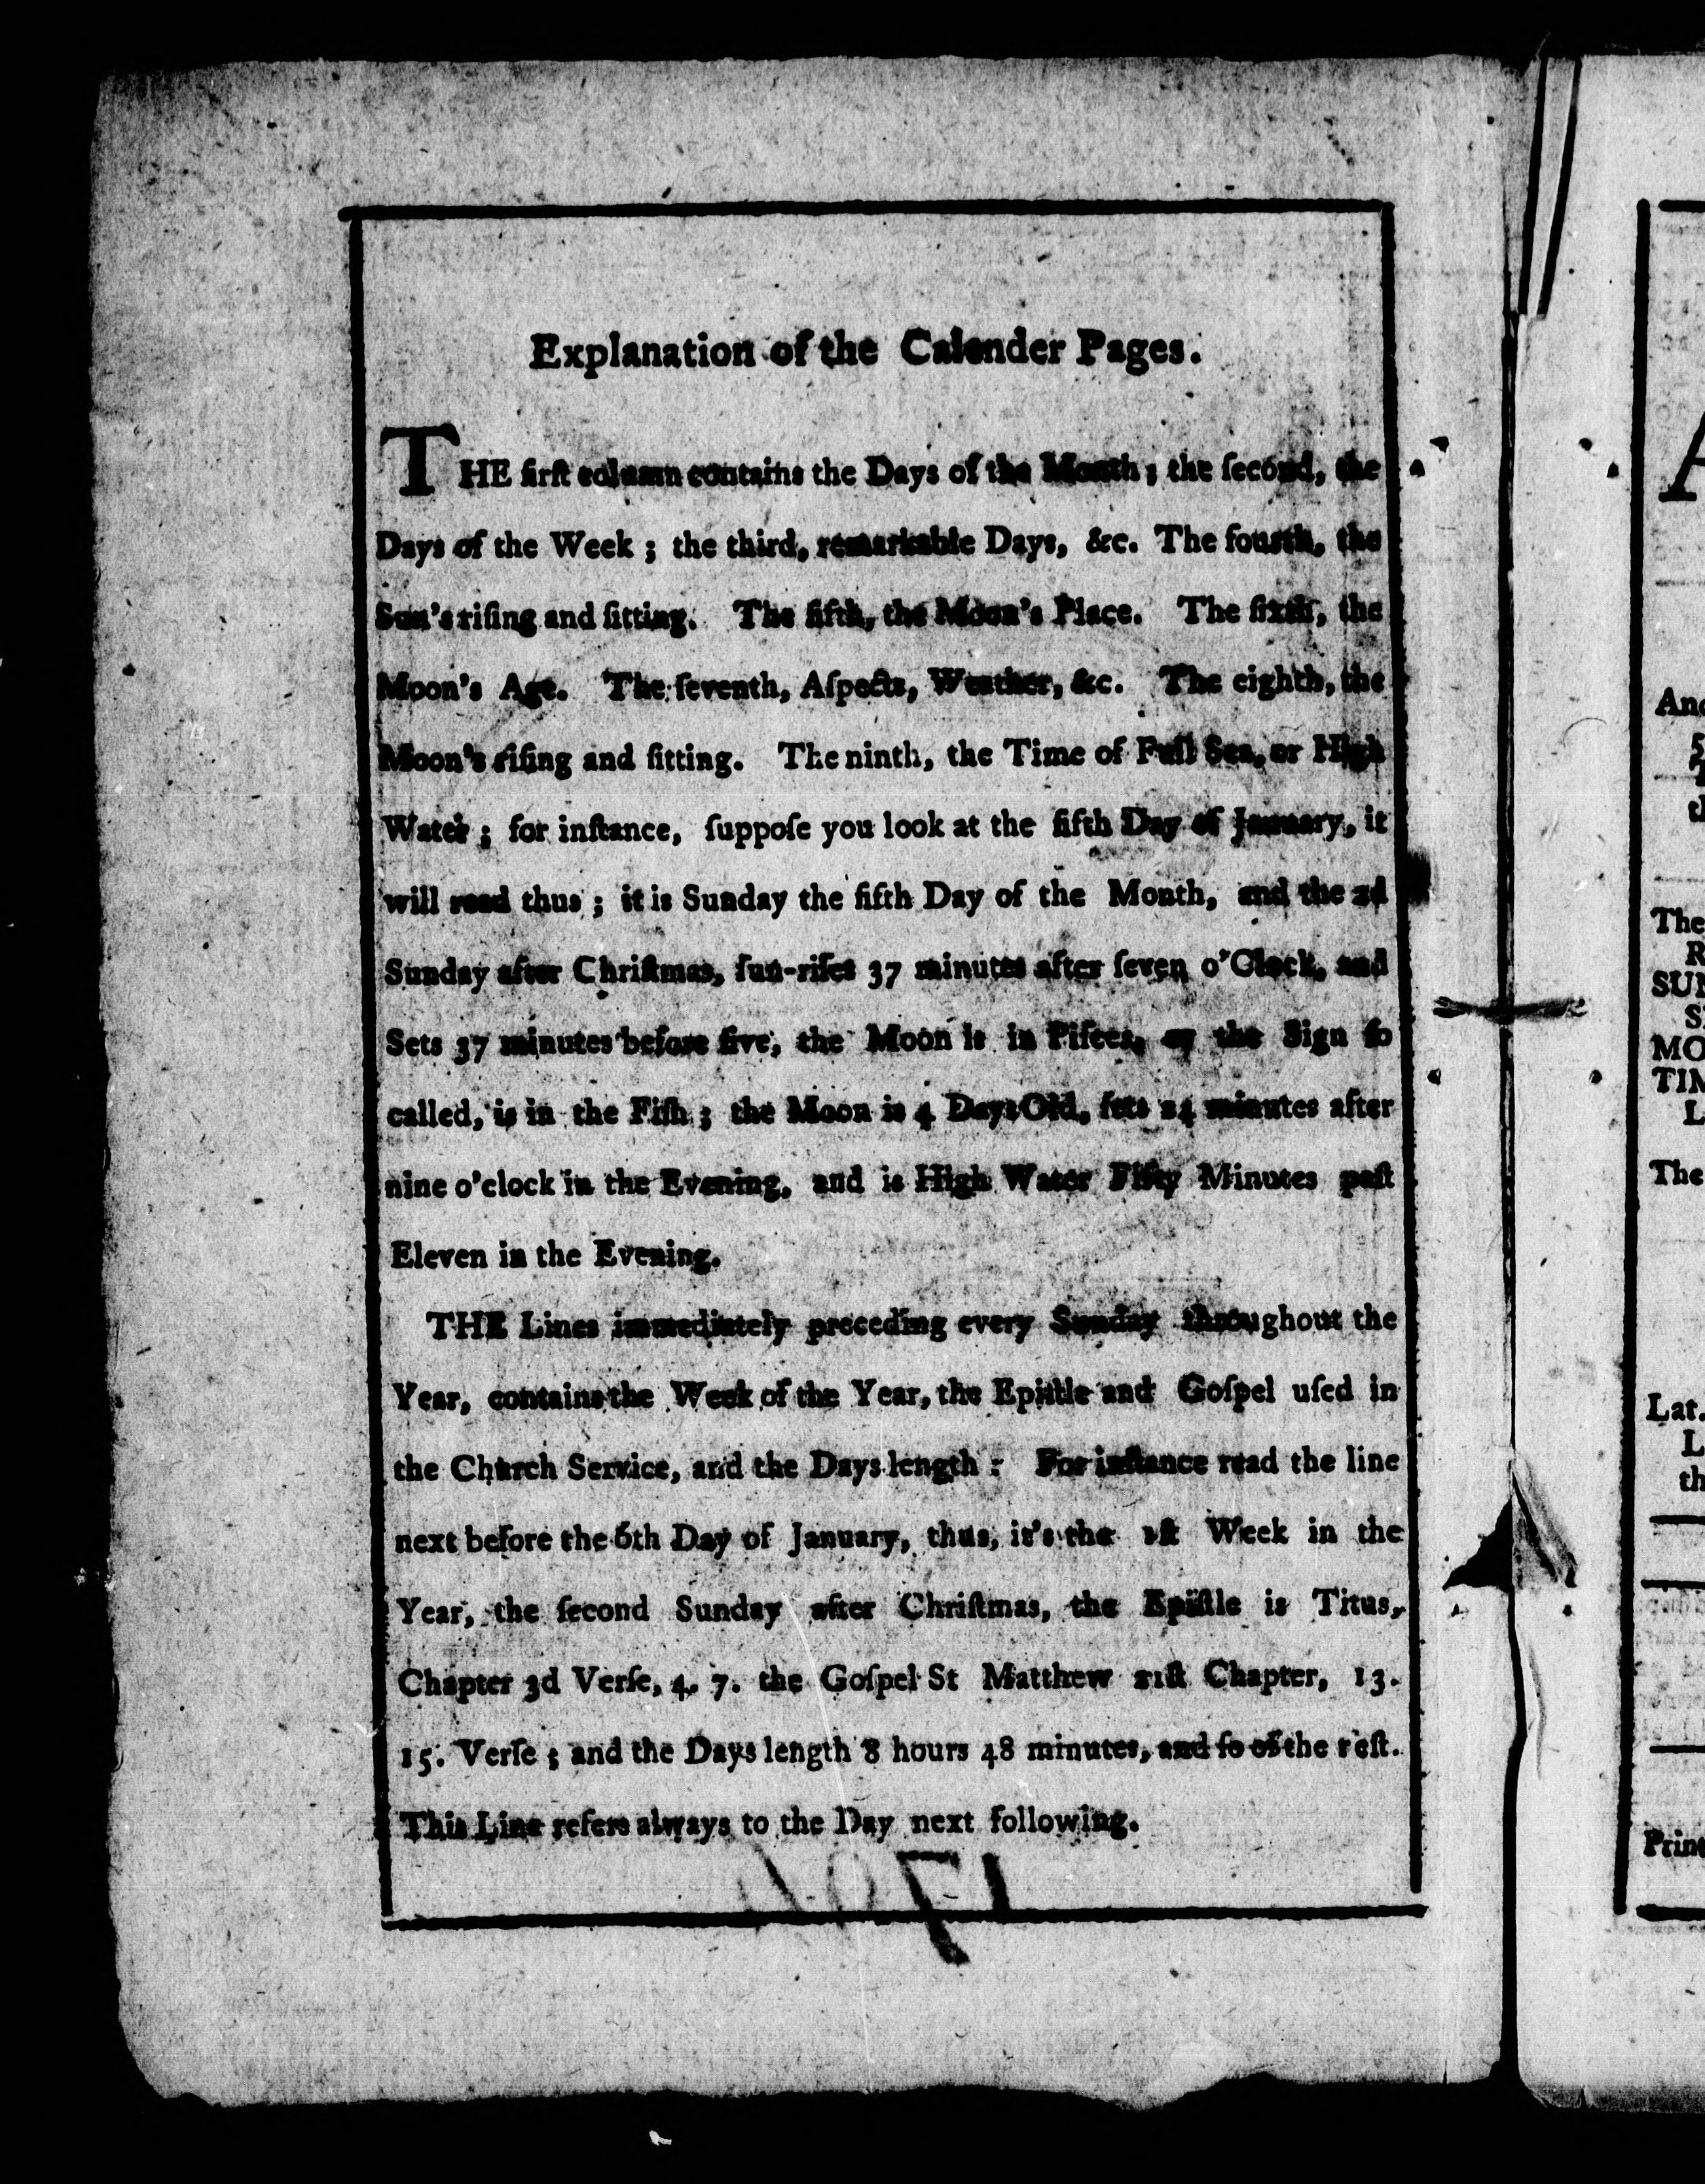 Explanation of the Calender Pages.
THE firſt column contains the Days of the Month; the ſecond, the
Days of the Week; the third, remarkable Days, &c. The fourth, the
Sun's riſing and ſitting. The fifth, the Moon's Place. The ſixth, the
Moon's Age. The ſeventh, Aſpects, Weather, &c. The eighth, the
Moon's riſing and ſitting. The ninth, the Time of Full Sea, or High
Water; for inſtance, ſuppoſe you look at the fifth Day of January, it
will read thus; it is Sunday the fifth Day of the Month, and the 2d
Sunday after Chriſtmas, ſun-riſes 37 minutes after ſeven o'Clock, and
Sets 37 minutes before five, the Moon is in Piſces, or the Sign ſo
called, is in the Fiſh; the Moon is 4 Days Old, ſets 24 minutes after
nine o'clock in the Evening, and is High Water Fifty Minutes paſt
Eleven in the Evening.
THE Lines immediately preceding every Sunday throughout the
Year, contains the Week of the Year, the Epiſtle and Goſpel uſed in
the Church Service, and the Days length: For inſtance read the line
next before the 6th Day of January, thus, it's the 1ſt Week in the
Year, the ſecond Sunday after Chriſtmas, the Epiſtle is Titus,
Chapter 3d Verſe, 4. 7. the Goſpel St Matthew 21ſt Chapter, 13.
15. Verſe; and the Days length 8 hours 48 minutes, and ſo of the reſt.
This Line refers always to the Day next following.
A
And
th
The
R
SUN
S
MO
TIM
L
The
Lat.
L
th
Print